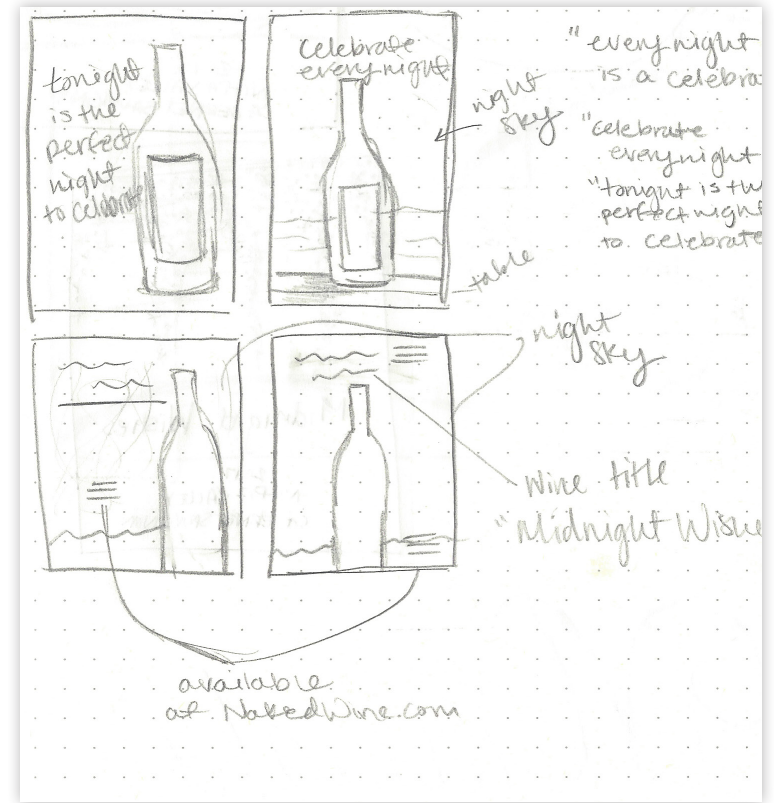 tonight
is the
perfect
night
to celebrate
Celebrate
every night
night
sky
table
"every night
is a celebra
"celebrate
every night
"tonight is th
perfect night
to celebrate
night
sky
Wine title
"Midnight Wishe
available
at NakedWine.com